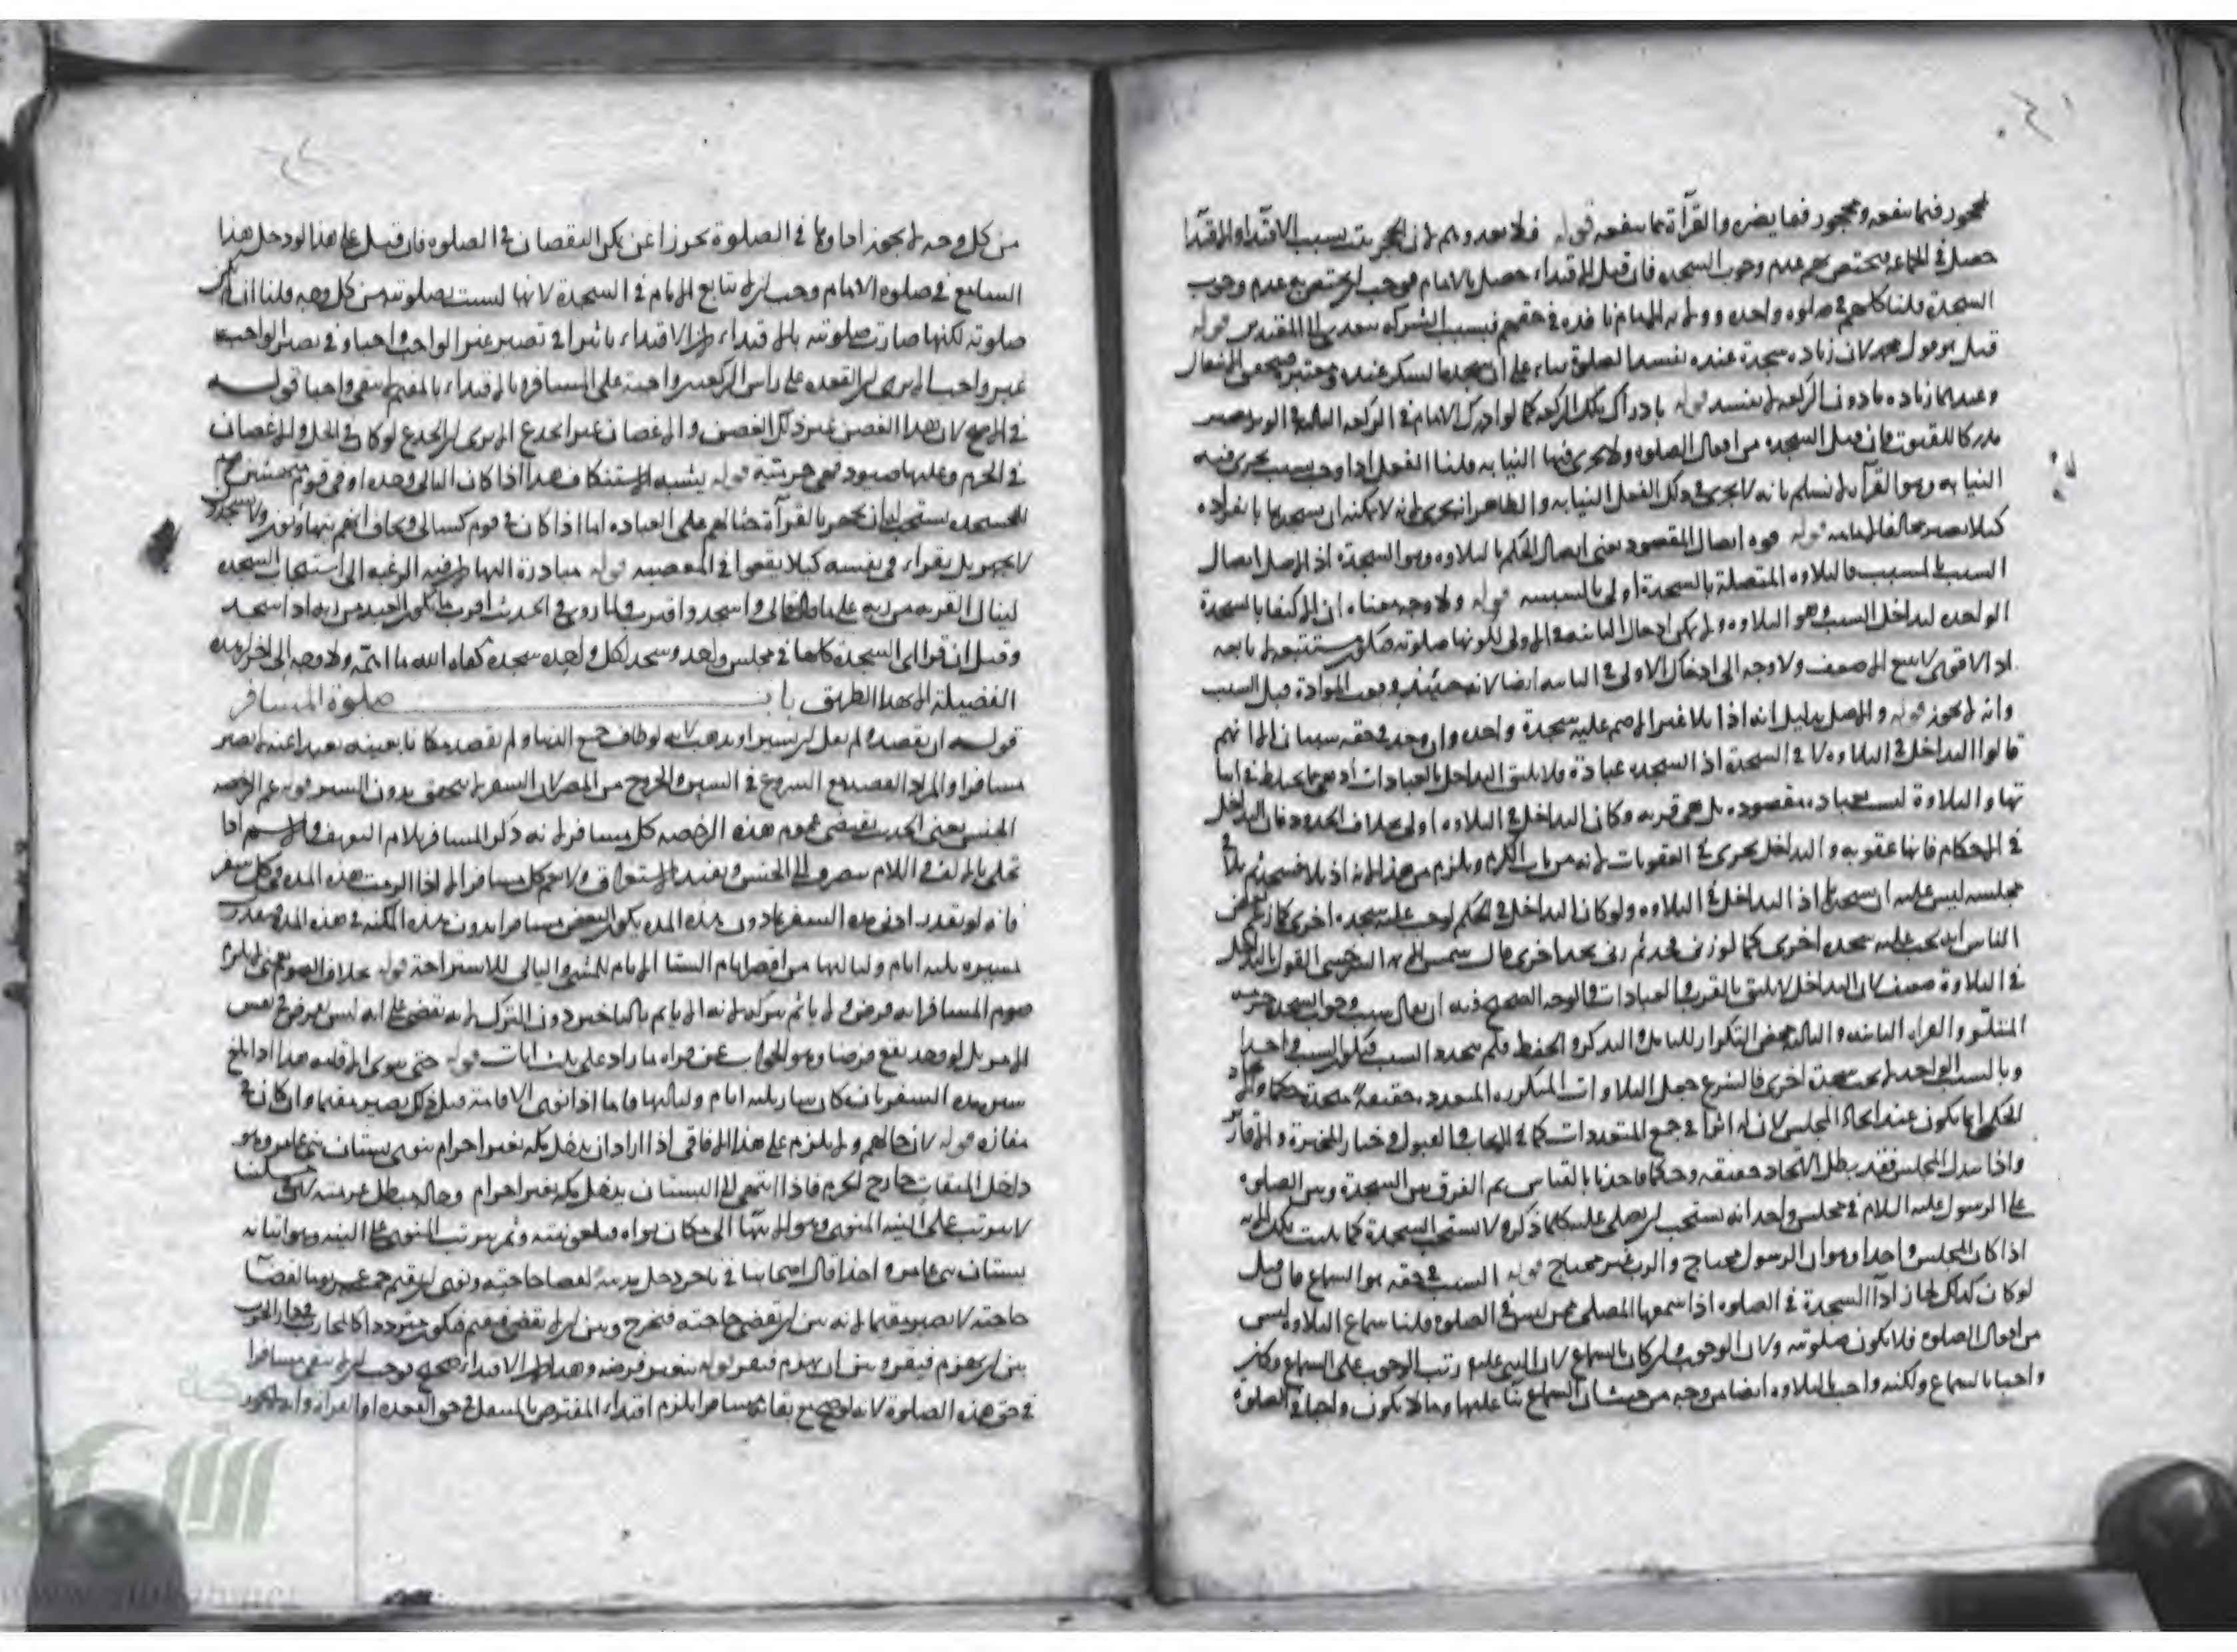 محجور فيما ينفعه ومحجور فيما يضره والقرآة مما ينفعه قوله فلا يعدوهم لان الحجر يثبت بسبب الاقتداء والاقتدا
حصل في الجماعة فيختص بهم عدم وجوب السجده فان قيل الاقتداء حصل بالامام فوجب ان يختص به عدم وجوب
السجدة قلنا كلهم في صلوة واحده
قيل هو قول محمد لان زيادة سجدة عنده تفسد الصلوة بناء على ان سجدة الشكر عنده معتبر
وعندهما زيادة ما دون الركعة لا تفسد قوله بادراك تلك الركعة كما لو ادرك الامام في الركعة الثالثة في الوتر يصير
مدركا للقنوت فان قيل السجده من افعال الصلوه ولا يجرى فيها النيابه قلنا الفعل اذا وجب بسبب يجرى فيه
النيابه وهو القرآة لا نسلم بانه لا يجرى في ذلك الفعل النيابه والظاهر انه يجرى لانه لا يمكنه ان يسجدها بانفراده
كيلا يصير مخالفا لامامه قوله قوة اتصال المقصود يعنى اتصال الحكم بالتلاوه وهو السجدة اذ الاصل اتصال
السبب بالمسبب فالتلاوه المتصلة بالسجدة اولى بالسببيه قوله ولا وجه معناه ان الاكتفا بالسجدة
الواحده لتداخل السبب وهو التلاوه ولا يمكن ادخال الثانية في الاولى لكونها صلوتيه فتكون مستتبعة لا تابعه
اذ الاقوى لا يتبع الاضعف ولا وجه الى ادخال الاولى في الثانيه ايضا لانه حينئذ قبل السبب
وانه لا يجوز قوله والاصل بدليل انه اذا تلا غير الاصم عليه سجدة واحده وان وجد في حقه سببان الا انهم
قالوا التداخل في التلاوه لا في السجدة اذ السجده عبادة فلا يليق التداخل بالعبادات اذ هي مما يحتاط في اثبا
تها والتلاوة ليست بعبادة مقصوده بل هي قربه وكان التداخل في التلاوه اولى بخلاف الحدود فان التداخل
في الاحكام فانها عقوبه والتداخل يجرى في العقوبات لانه من باب الكرم ويلزم من هذا انه اذ تلا فسجد ثم تلا في
مجلسه ليس عليه ان يسجد اذ التداخل في التلاوه ولو كان التداخل في الحكم لوجب عليه سجده اخرى كما زعم بعض
الناس انه يجب عليه سجده اخرى كما لو زنى فحد ثم زنى يحد اخرى قال شمس الائمه السرخسى القول بالتداخل
في التلاوة ضعيف لان التداخل لا يليق بالقرب والعبادات والوجه الصحيح فيه ان يقال سبب وجوب السجده حرمة
المتلو والقراه الثانيه والثالثه محض التكرار للتامل والتذكر والحفظ فلم يتجدد السبب فيكون السبب واحدا
وبالسبب الواحد لا يجب سجدة اخرى فالشرع جعل التلاوات المتكرره المتعدده حقيقة متحدة حكما واتحاد
الحكمى انما يكون عند اتحاد المجلس لان له اثرا في جمع المتعددات كما في الايجاب والقبول وخيار المخيرة والاقارير
واذا تبدل المجلس فقد بطل الاتحاد حقيقه وحكما فاخذنا بالقياس ثم الفرق بين السجدة وبين الصلوة
على الرسول عليه السلام في مجلس واحد انه يستحب ان يصلى عليه كلما ذكره ولا يستحب السجدة كما تليت تلك الايه
اذا كان المجلس واحدا وهو ان الرسول محتاج والرب غير محتاج قوله السبب في حقه هو السماع فان قيل
لو كان كذلك لجاز آدا السجدة في الصلوه اذا سمعها المصلى ممن ليس في الصلوه قلنا سماع التلاوه ليس
من افعال الصلوه فلا تكون صلوتيه ولان الوجوب وان كان بالسماع لان النبى عليه رتب الوجوب على السماع وكان
واجبا بالسماع ولكنه واجب بالتلاوه ايضا من وجه من حيث ان السماع بنا عليها وما لا يكون واجبا في الصلوة
من كل وجه لا يجوز اداوها في الصلوة تحرزا عن تمكن النقصان في الصلوه فان قيل على هذا لو دخل هذا
السامع في صلوه الامام وجب ان لا يتابع الامام في السجدة لانها ليست بصلوتيه من كل وجه قلنا ان لم تكن
صلوتيه لكنها صارت صلوتيه بالاقتداء لان الاقتداء تاثيرا في تصيير غير الواجب واجبا وفي تصيير الواجب
غير واجب الا يرى ان القعده على راس الركعتين واجبة على المسافر وبالاقتداء بالمقيم لا يبقى واجبا قوله
في الاصح لان هذا الغصن غير ذلك الغصن والاغصان غير الجذع الا يرى ان الجذع لو كان في الحل والاغصان
في الحرم وعليها صيود فهى حرميته قوله يشبه الاستنكاف هذا اذا كان التالى وحده او في قوم متحشمين
للسجده يستحب ان يجهر بالقرآة حثا لهم على العباده اما اذا كان في قوم كسالى ويخاف انهم يتهاونون ولا يسجدون
لا يجهر بل يقراء في نفسه كيلا يقعوا في المعصيه قوله مبادرة اليها
لينال القربه من ربه على ما قال تعالى واسجد واقترب ولما روى في الحديث اقرب ما يكون العبد من ربه اذا سجد
وقيل ان قرا آى السجدة كلها في مجلس واحد وسجد لكل واحده سجده كفاه الله ما اهمه ولا وجه الى احراز هذه
الفضيلة الا بهذا الطريق باب صلوة المسافر
قوله ان يقصد ولم يقل ان يسير او يذهب لانه لو طاف جميع الدنيا ولم يقصد مكانا بعينه بعيدا عنه لا يصير
مسافرا والمراد القصد مع الشروع في السير والخروج من المصر لان السفر لا يتحقق بدون السير قوله عم الرخصه
الجنس يعنى الحديث يقتضى عموم هذه الرخصه كل مسافر لانه ذكر المسافر بلام التعريف والاسم اذا
تحلى بالالف واللام ينصرف الى الجنس ويفيد الاستغراق ولا يعم كل مسافر الا اذا اثبت هذه المده في كل سفر
فانه لو تقدر ادنى مدة السفر بما دون هذه المده يكون البعض مسافرا بدون
مسيره ثلثه ايام ولياليها من اقصر ايام السنة الايام للمشى والليالى للاستراحة قوله بخلاف الصوم يعنى
صوم المسافر انه فرض ولا ياثم بتركه لانه انما ياثم بالتاخير دون الترك
الامر بل لو وجد يقع فرضا وهو الجواب عن قراه ما زاد على ثلث آيات قوله حتى ينوى الاقامة هذا اذا بلغ
سيره مدة السفر بان كان سار ثلثه ايام ولياليها فاما اذا نوى الاقامة قبل ذلك يصير مقيما وان كان في
مفازه قوله لان حالهم ولا يلزم على هذا الافاقى اذا اراد ان يدخل مكه بغير احرام ينوى بستان بنى عامر وهو
داخل الميقات خارج الحرم فاذا انتهى الى البستان يدخل مكه بغير احرام
لا يترتب على النية المنوى وهو الانتها الى مكان نواه فيلغو نيته وثم يترتب المنوى على النيه وهو اتيانه
بستان بنى عامر واحدا قال اصحابنا في تاجر دخل مدينة لقضا حاجته ونوى ان يقيم خمسه عشر يوما لقضا
حاجته لا يصير مقيما لانه بين ان يقضى حاجته فيخرج وبين ان لا يقضى فيقيم فيكون مترددا كالمحارب في دار الحرب
بين ان يهزم فيقر وبين ان ينهزم فيفر قوله يتغير فرضه وهذا لان الاقتداء صحيح فوجب ان لا يبقى مسافرا
في حق هذه الصلوة لانه لو صح مع بقائه مسافرا يلزم اقتداء المفترض بالمتنفل في حق القعده او القراءه وانه لا يجوز